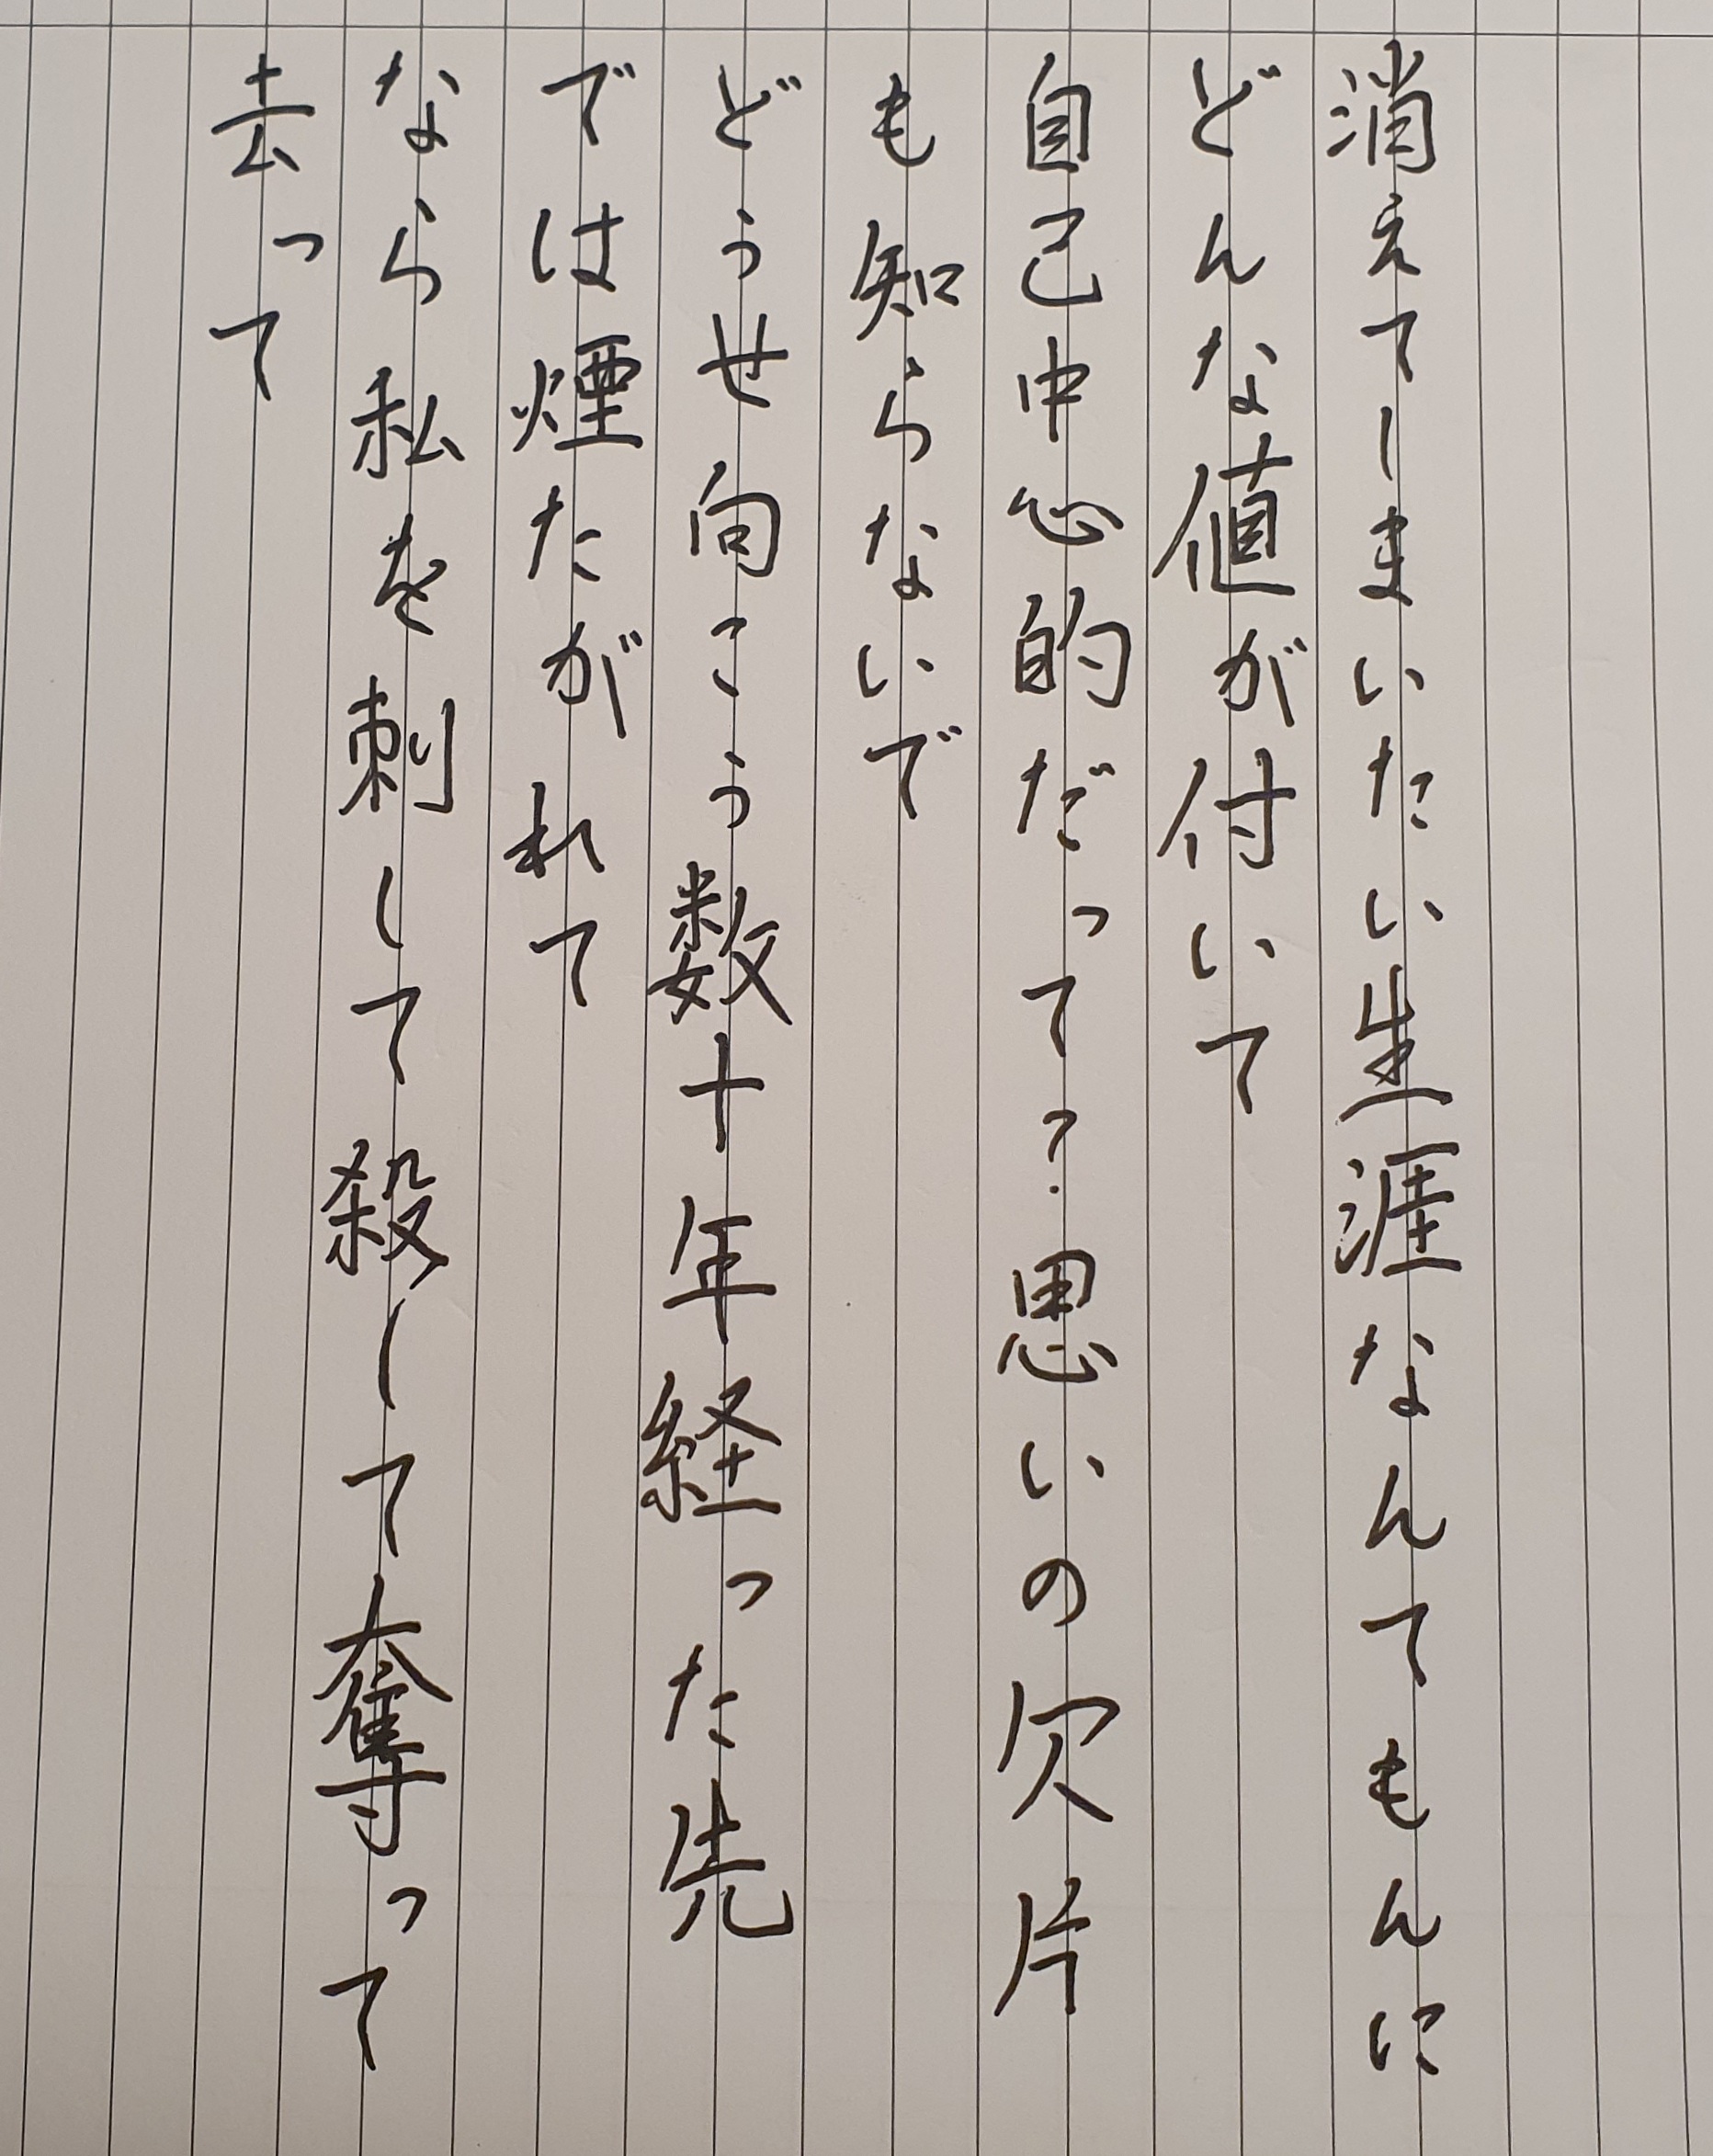 消えてしまいたい生涯なんてもんに
どんな値が付いて
自己中心的だって?思いの欠片
も知らないで
どうせ向こう数十年経った先
では煙たがれて
なら私を刺して殺して奪って
去って